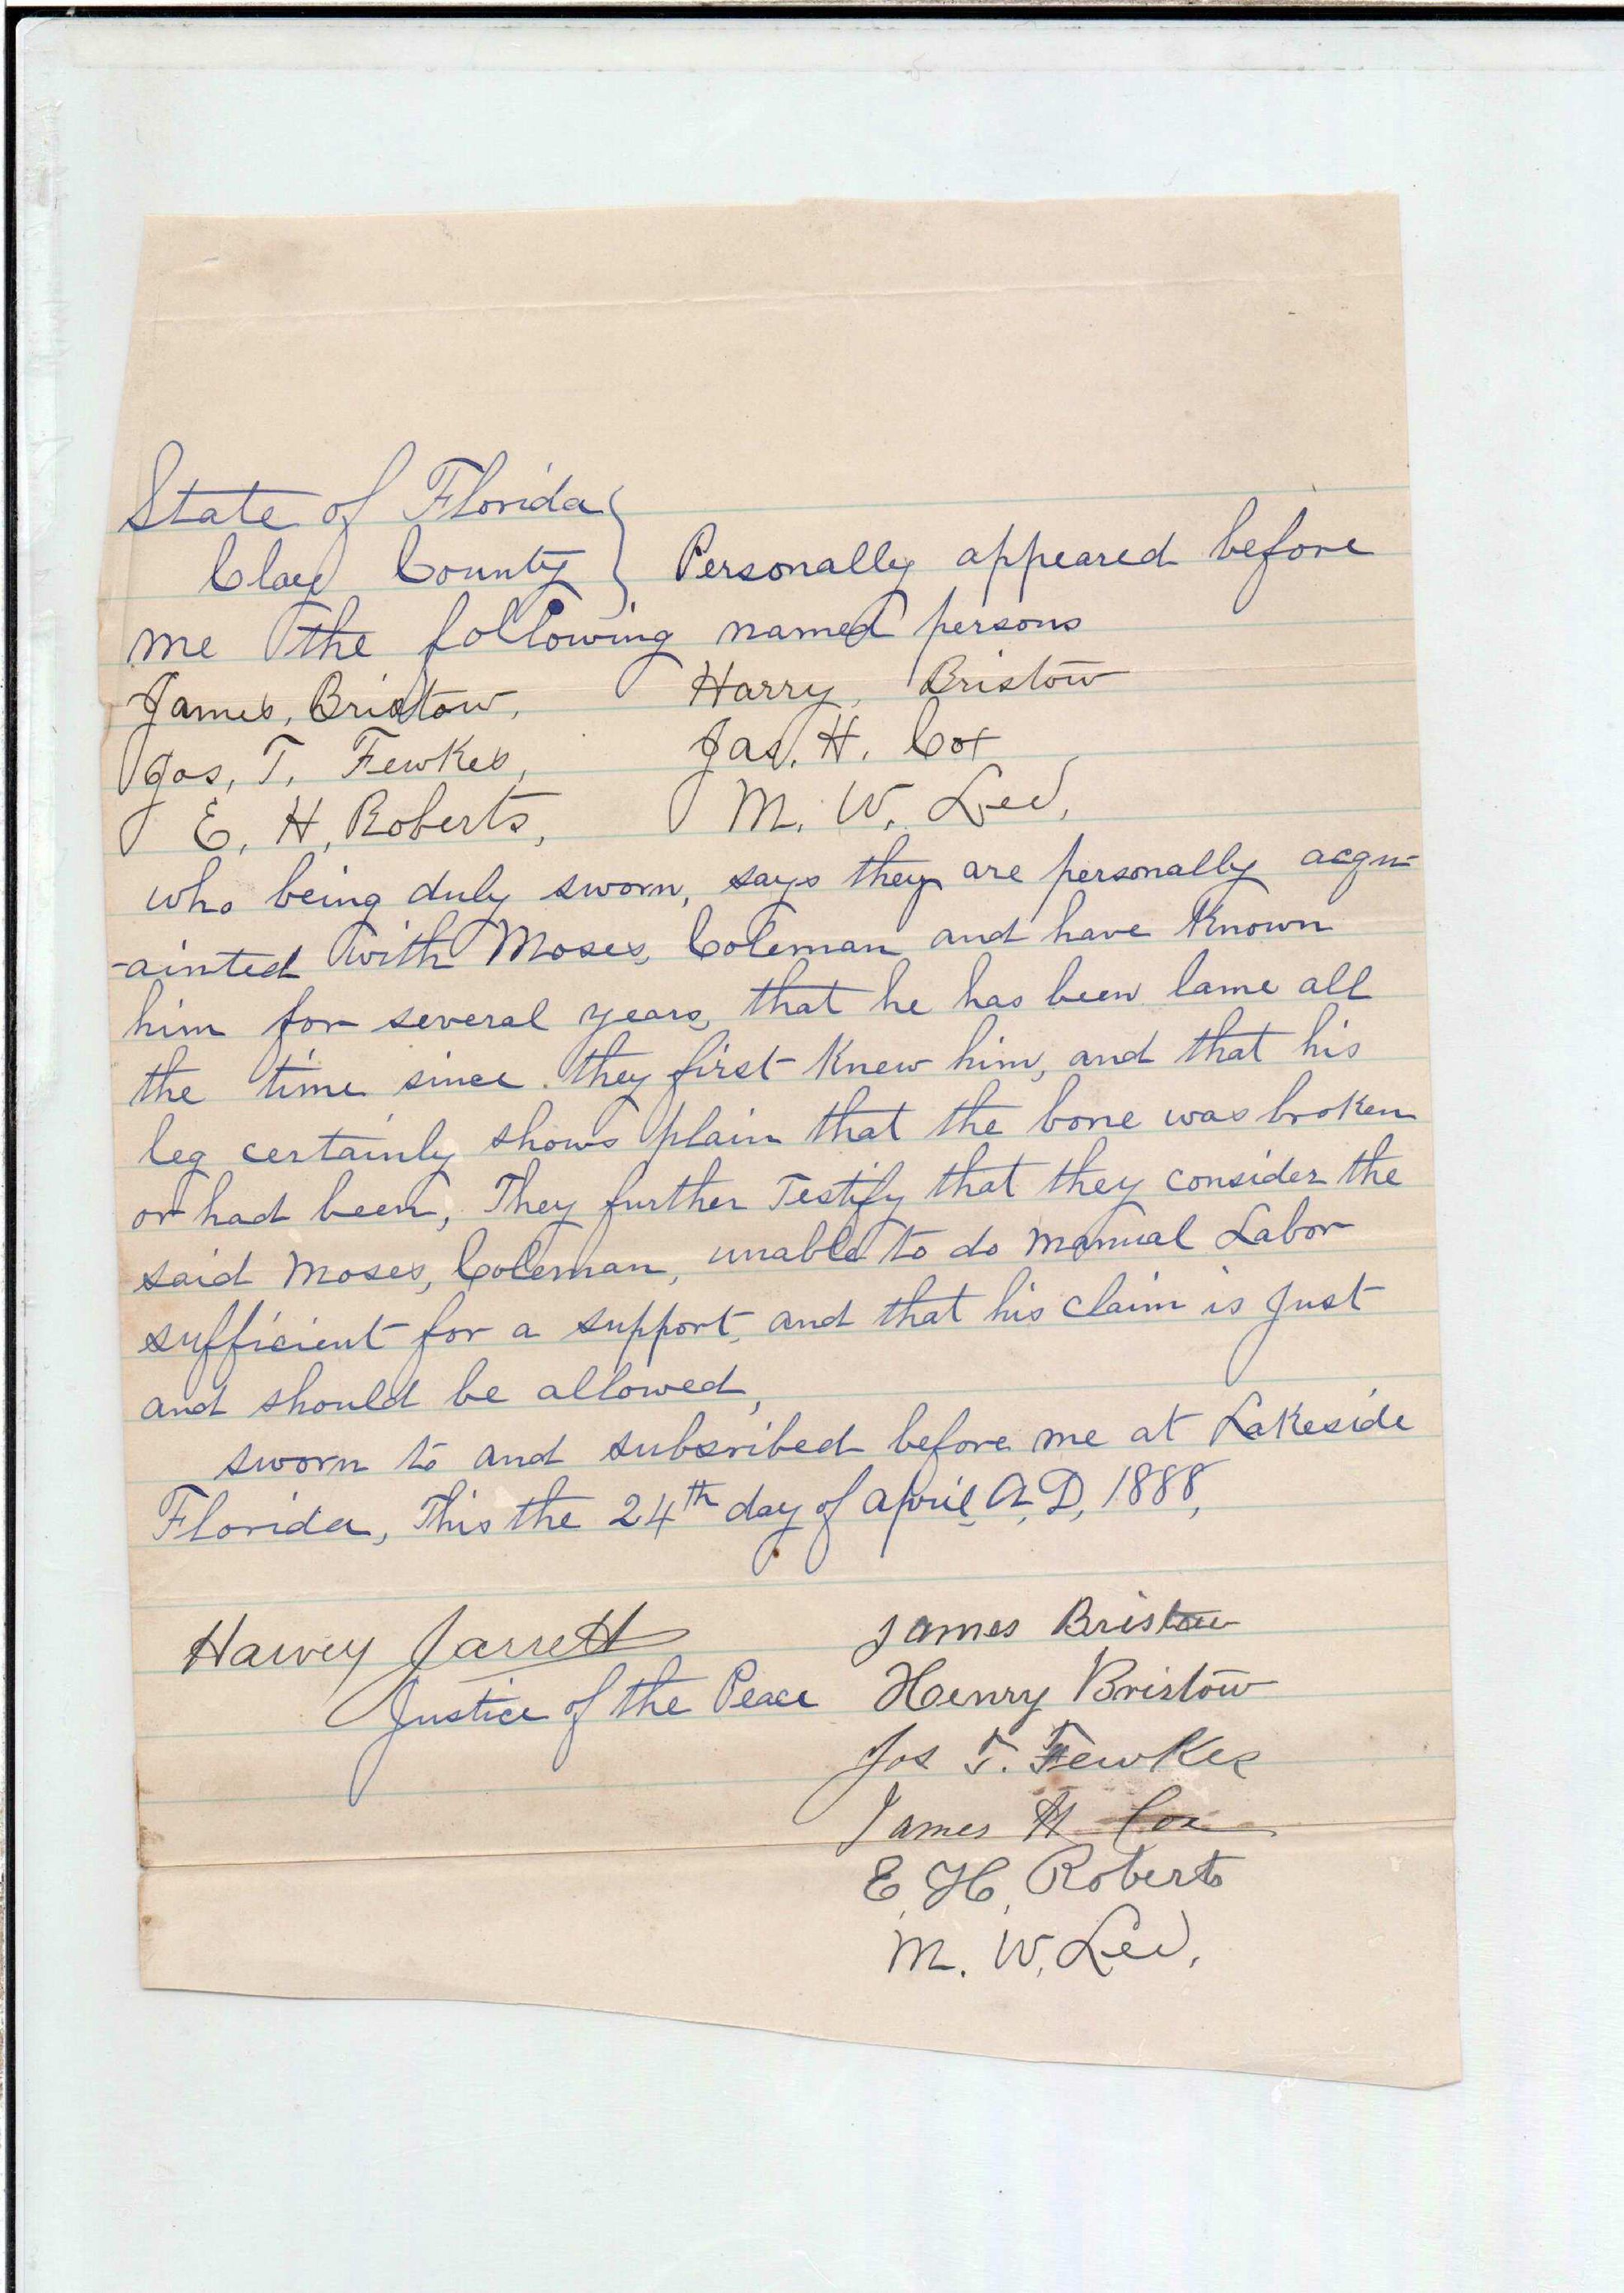 State of Florida }
Clay County } Personally appeared before
me the following named persons
James, Bristow, Harry, Bristow
Jos, T, Fewkes, Jas, H. Cox
E, H, Roberts, M. W. Lee,
who being duly sworn, says they are personally acqu-
-ainted with Moses, Coleman and have Known
him for several years, that he has been lame all
the time since they first Knew him, and that his
leg certainly shows plain that the bone was broken
or had been, They further Testify that they consider the
said Moses, Coleman, unable to do manual Labor
sufficient for a support, and that his claim is Just
and should be allowed,
sworn to and subscribed before me at Lakeside
Florida, This the 24th day of April, A, D, 1888,
Harvey Jarrett James Bristow
Justice of the Peace Henry Bristow
Jos T. Fewkes
James H Cox
E, H, Roberts
M. W, Lee,